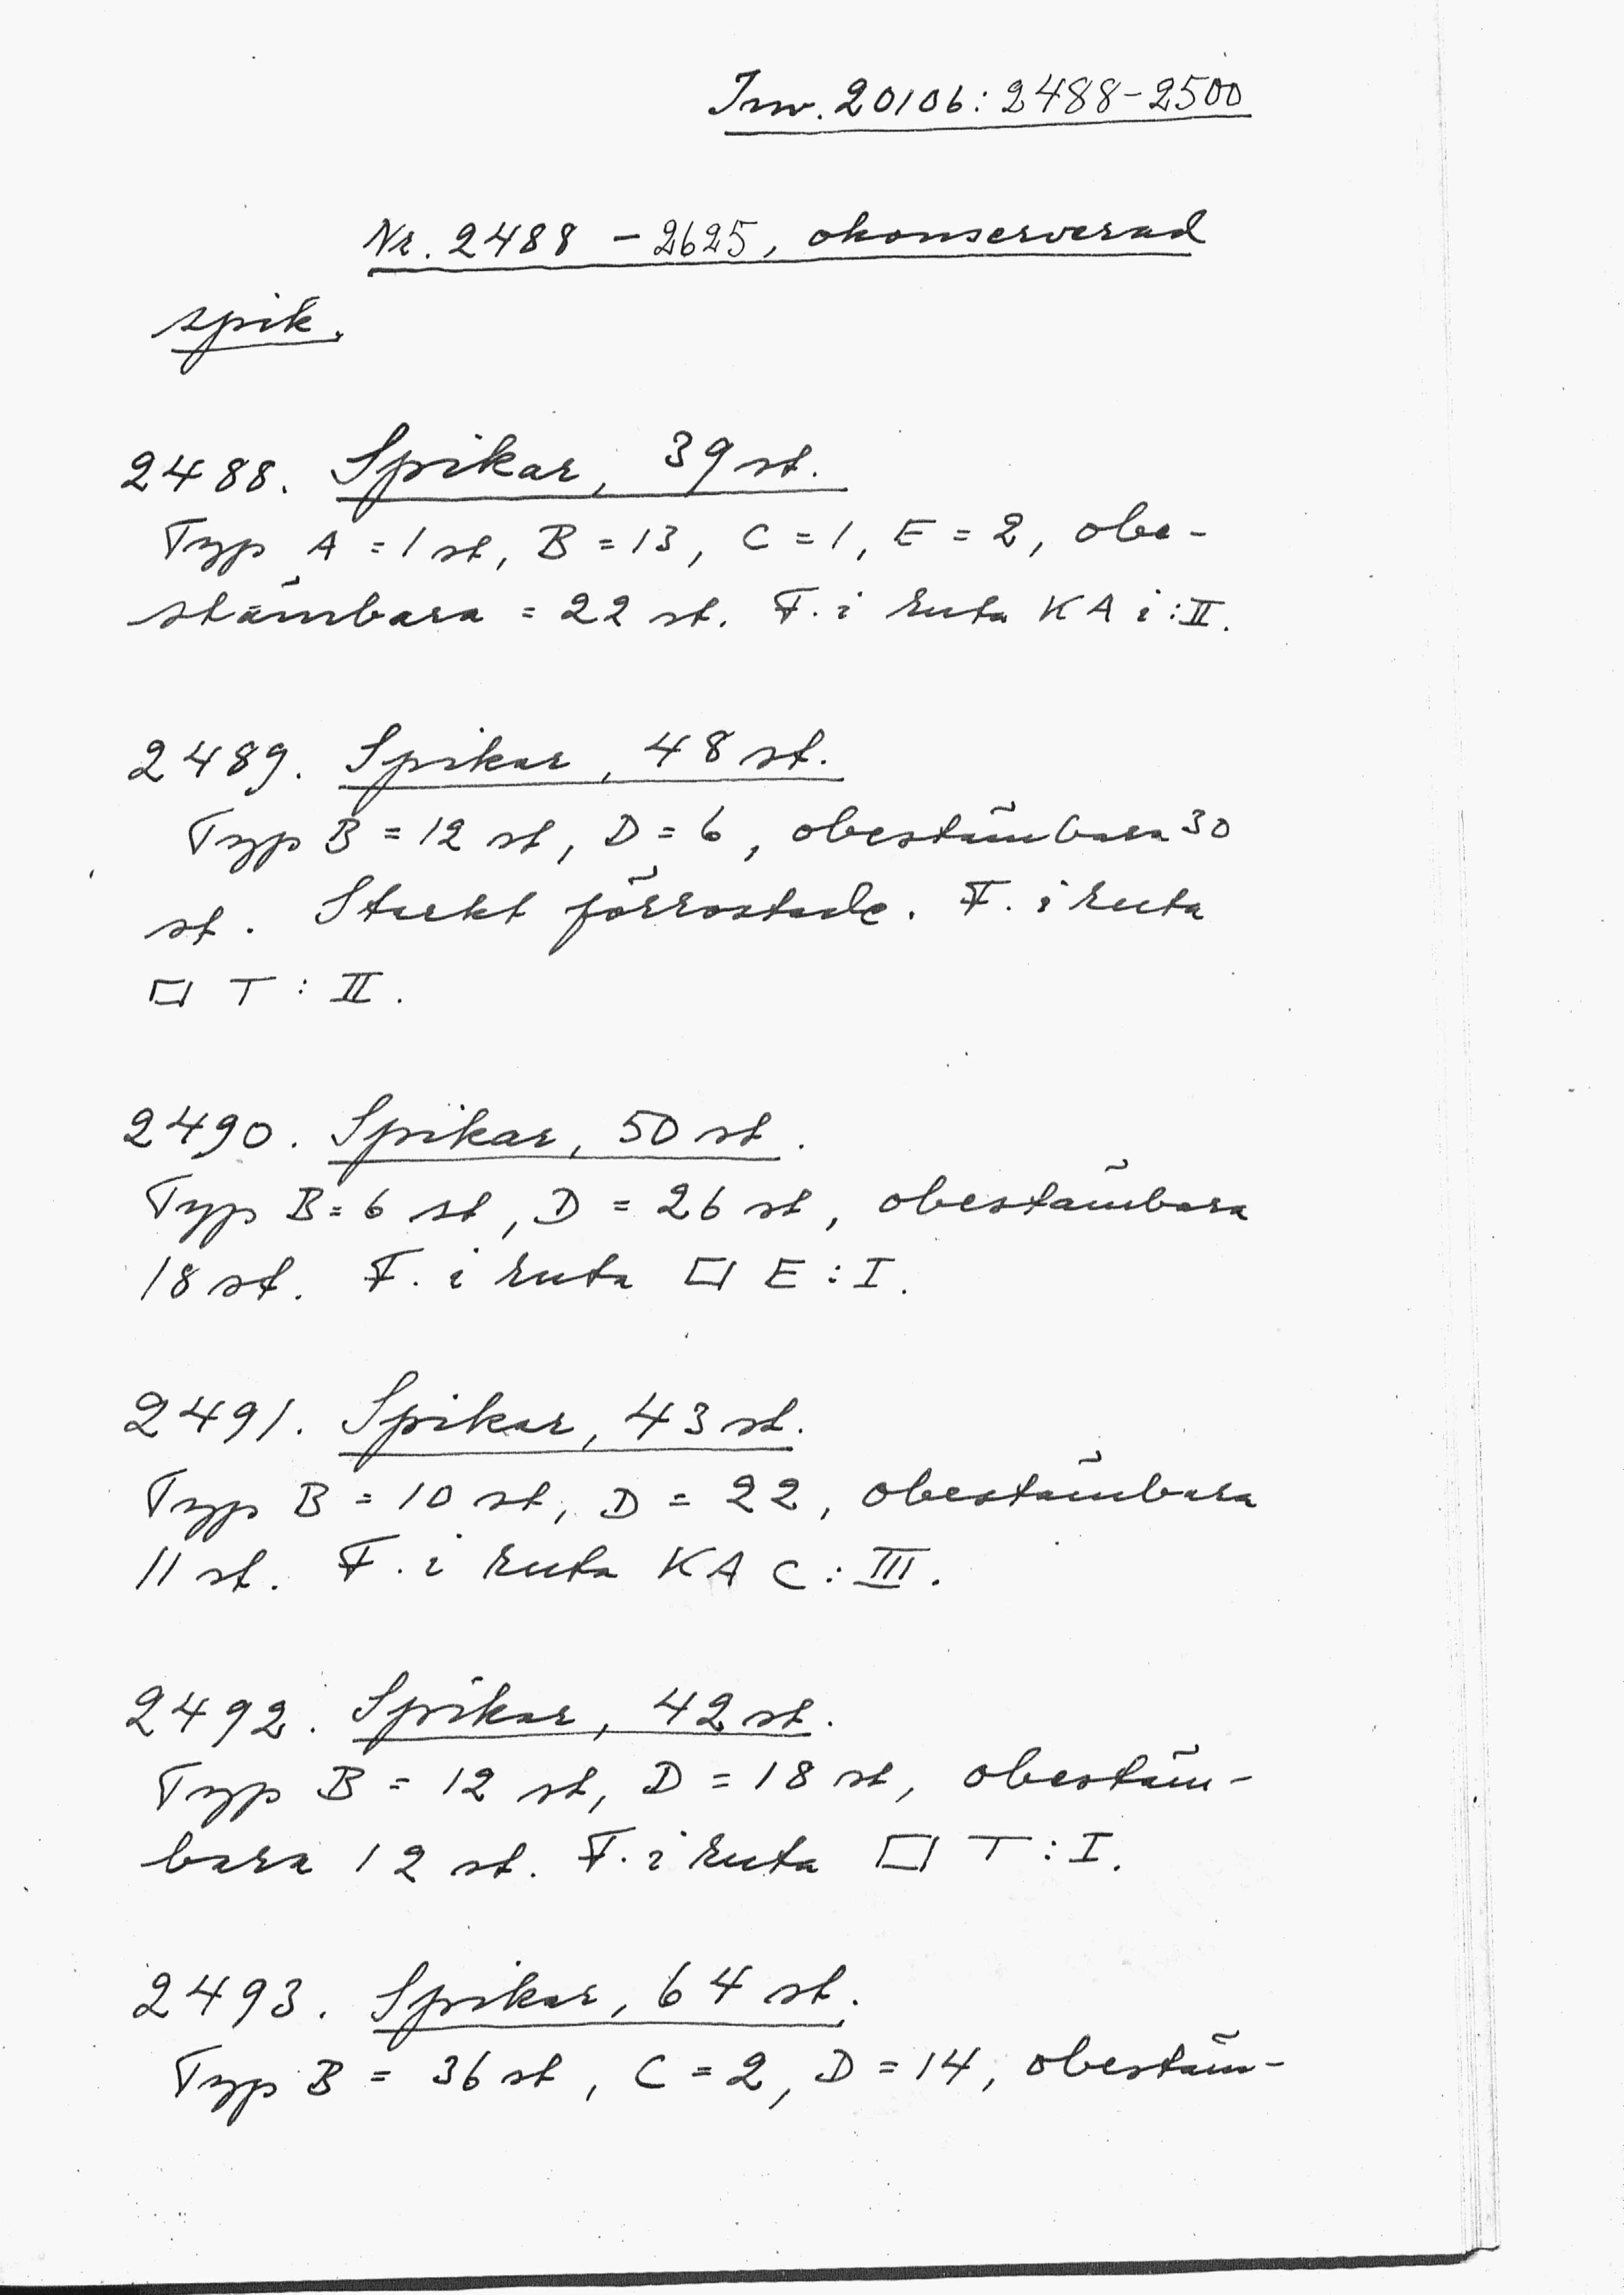 Inv. 20106: 2488-2500
Nr. 2488 - 2625, okonserverad
spik.
2488. Spikar, 39 st.
Typ A = 1 st, B = 13, C = 1, E = 2, obe-
stämbara = 22 st. F. i ruta KA i:II.
2489. Spikar, 48 st.
Typ B = 12 st, D = 6, obestämbara 30
st. Starkt förrostade. F. i ruta
□ T : II.
2490. Spikar, 50 st.
Typ B = 6 st, D = 26 st, obestämbara
18 st. F. i ruta □ E : I.
2491. Spikar, 43 st.
Typ B = 10 st, D = 22, obestämbara
11 st. F. i ruta KA C : III.
2492. Spikar, 42 st.
Typ B = 12 st, D = 18 st, obestäm-
bara 12 st. F. i ruta □ T : I.
2493. Spikar, 64 st.
Typ B = 36 st, C = 2, D = 14, obestäm-